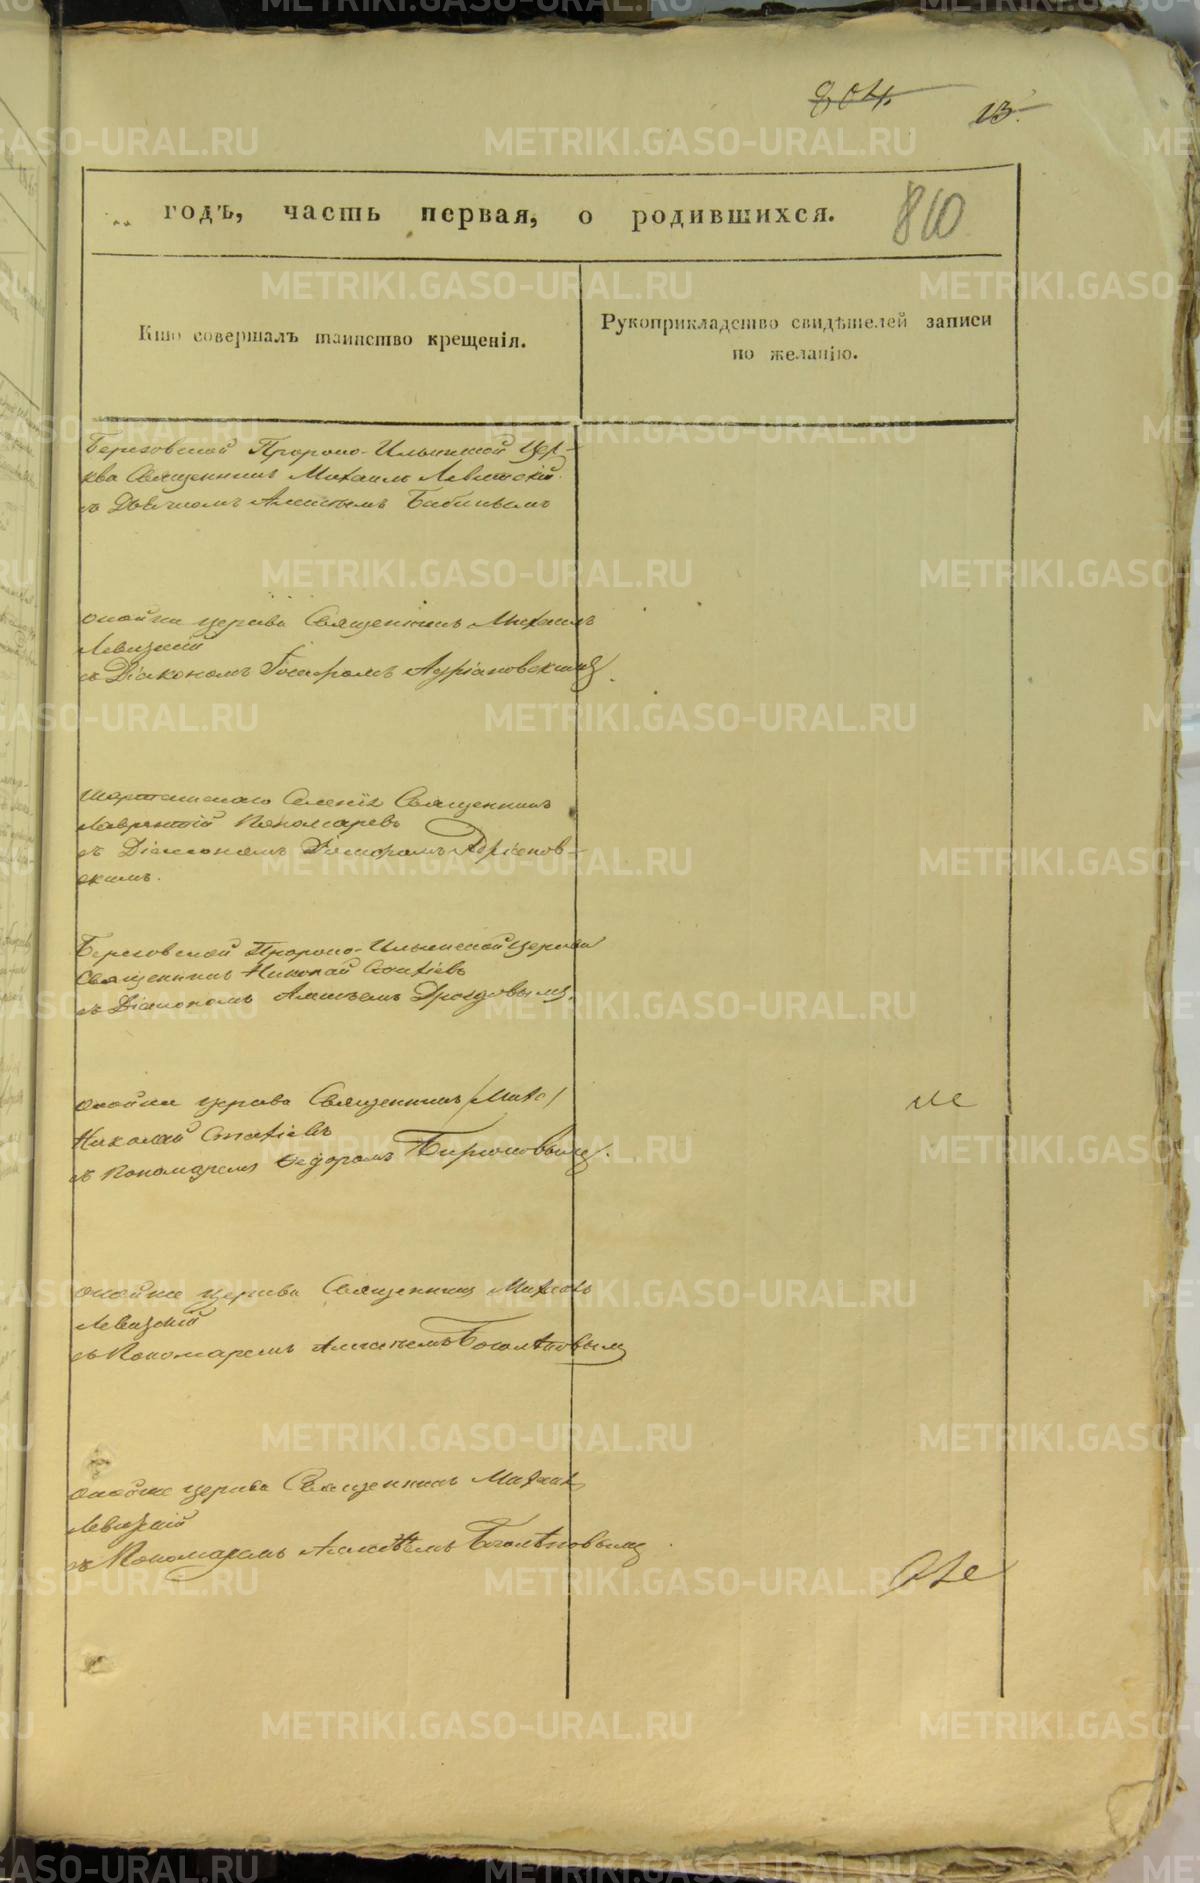 804
13.
годъ, часть первая, о родившихся. 810
Кто совершалъ таинство крещенія.
Рукоприкладство свидѣтелей записи
по желанію.
Березовской Пророко-Ильинской Цер-
кви Священникъ Михаилъ Левитскій
съ Дьячкомъ Бабинымъ
оной же церкви Священникъ Михаилъ
Левицкій
съ Діакономъ Адріановскимъ.
Шарташскаго Селенія Священникъ
Лаврентій Пономаревъ
съ Діакономъ Адріанов-
скимъ.
Березовской Пророко-Ильинской Церкви
Священникъ Николай
съ Діакономъ Дроздовымъ.
оной же церкви Священникъ /Миха/
Николай
съ Пономаремъ Федоромъ Бирюковымъ.
оной же церкви Священникъ Михаилъ
Левицкій
съ Пономаремъ Боголѣповымъ
оной же церкви Священникъ Михаилъ
Левицкій
съ Пономаремъ Боголѣповымъ
METRIKI.GASO-URAL.RU